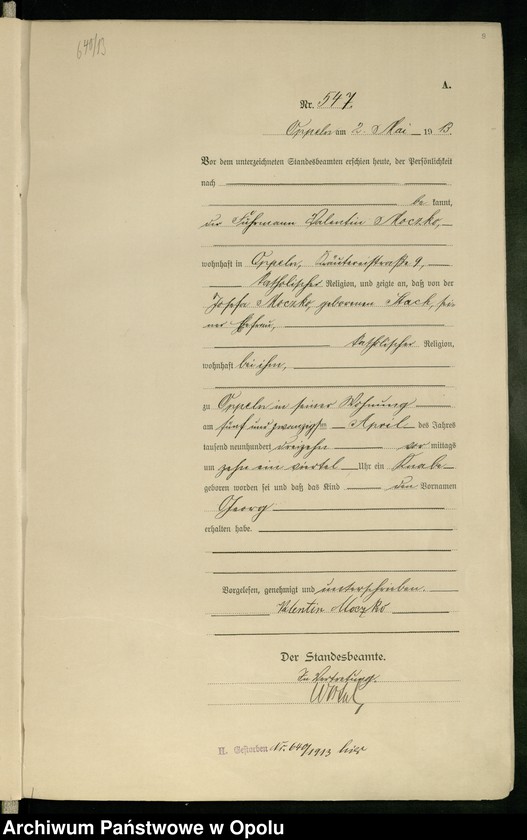 640/13
A.
Nr. 547.
Oppeln am 2. Mai 19 13.
Vor dem unterzeichneten Standesbeamten erschien heute, der Persönlichkeit
nach
be kannt,
der Fuhrmann Valentin Moczko,
wohnhaft in Oppeln, 9,
katholischer Religion, und zeigte an, daß von der
Josefa Moczko, geborenen Mach, sei-
ner Ehefrau,
katholischer Religion,
wohnhaft bei ihm,
zu Oppeln in seiner Wohnung
am fünf und zwanzigsten April des Jahres
tausend neunhundert dreizehn vor mittags
um zehn ein viertel Uhr ein Knabe
geboren worden sei und daß das Kind den Vornamen
Georg
erhalten habe.
Vorgelesen, genehmigt und unterschrieben.
Valentin Moczko
Der Standesbeamte.
In Vertretung.
II. Gestorben Nr. 640/1913 hier
Archiwum Państwowe w Opolu